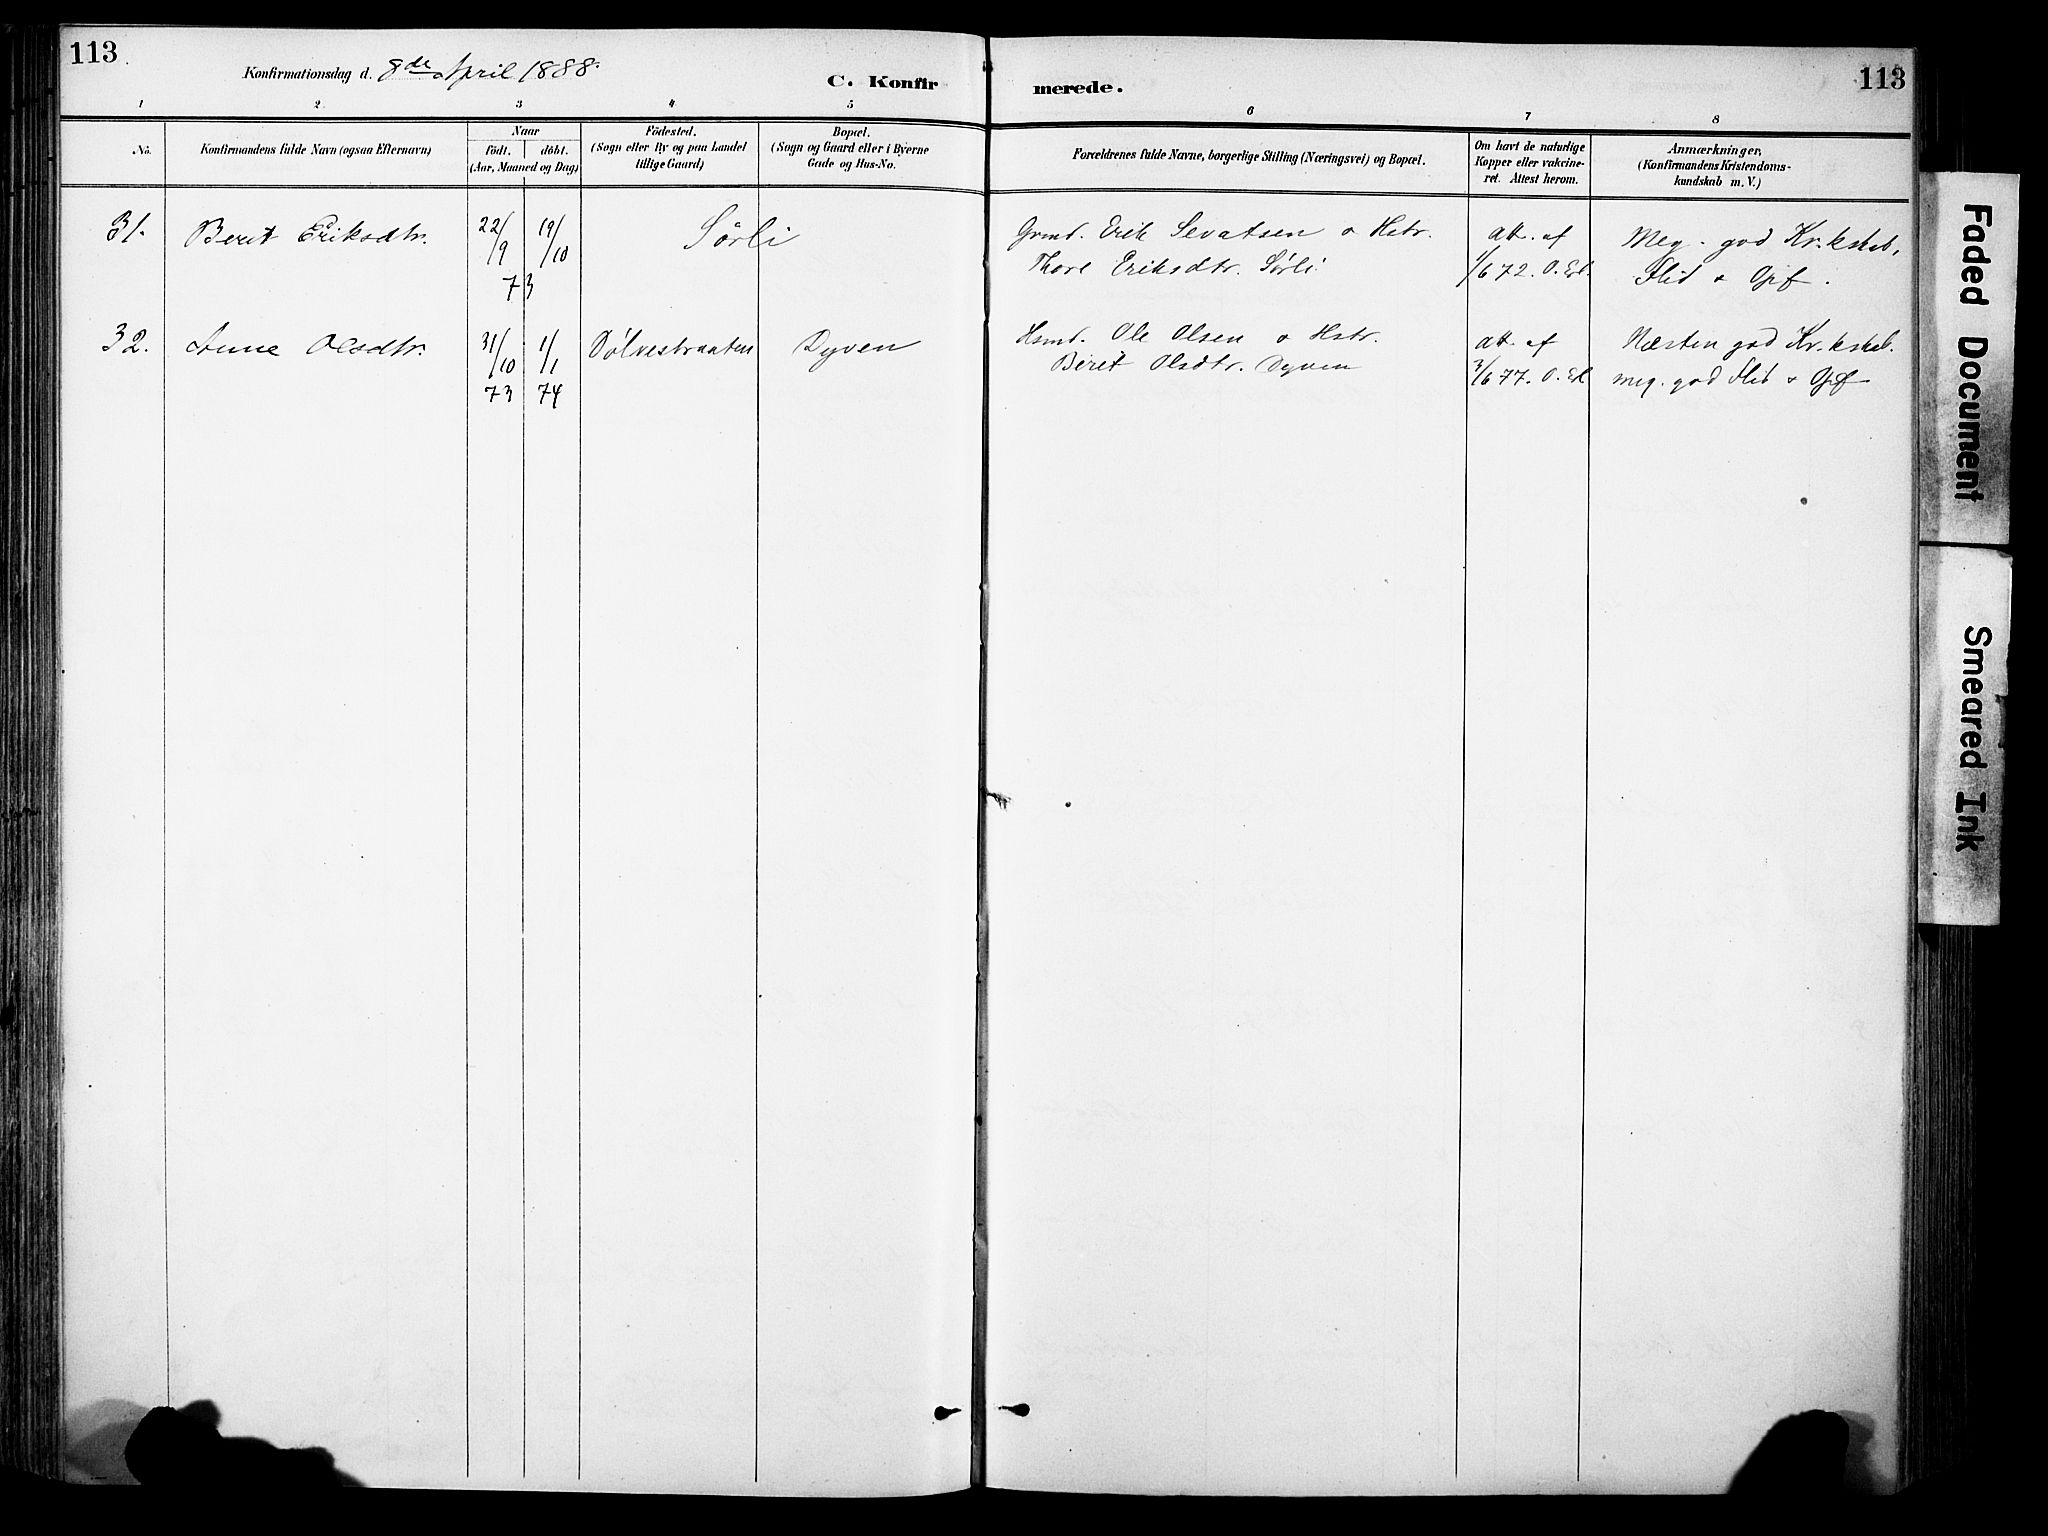 113
Konfirmationsdag d. 8de April 1888.
C. Konfir
merede.
113
1 2 3 4 5 6 7 8
No.
Konfirmandens fulde Navn (ogsaa Efternavn)
Naar
födt. döbt.
(Aar, Maaned og Dag)
Födested.
(Sogn eller By og paa Landet
tillige Gaard)
Bopæl.
(Sogn og Gaard eller i Byerne
Gade og Hus-No.
Forældrenes fulde Navne, borgerlige Stilling (Næringsvei) og Bopæl.
Om havt de naturlige
Kopper eller vakcine-
ret. Attest herom.
Anmærkninger,
(Konfirmandens Kristendoms-
kundskab m. V.)
31. Berit Eriksdtr. 22/9 19/10 73 Sørli
Grmd. Erik Sevatsen o Hstr.
Thore Eriksdtr. Sørli.
att. af
1/6 72. O.
Meg. god Kr.kskab,
Flid & Opf.
32. Anne Olsdtr. 31/10 73 1/1 74 Dølvestraaten Dyven
Hsmd. Ole Olsen o Hstr.
Berit Olsdtr. Dyven
att. af
3/6 77. O.
Næsten god Kr.kskab.
meg. god Flid & Opf
Faded Document
Smeared Ink